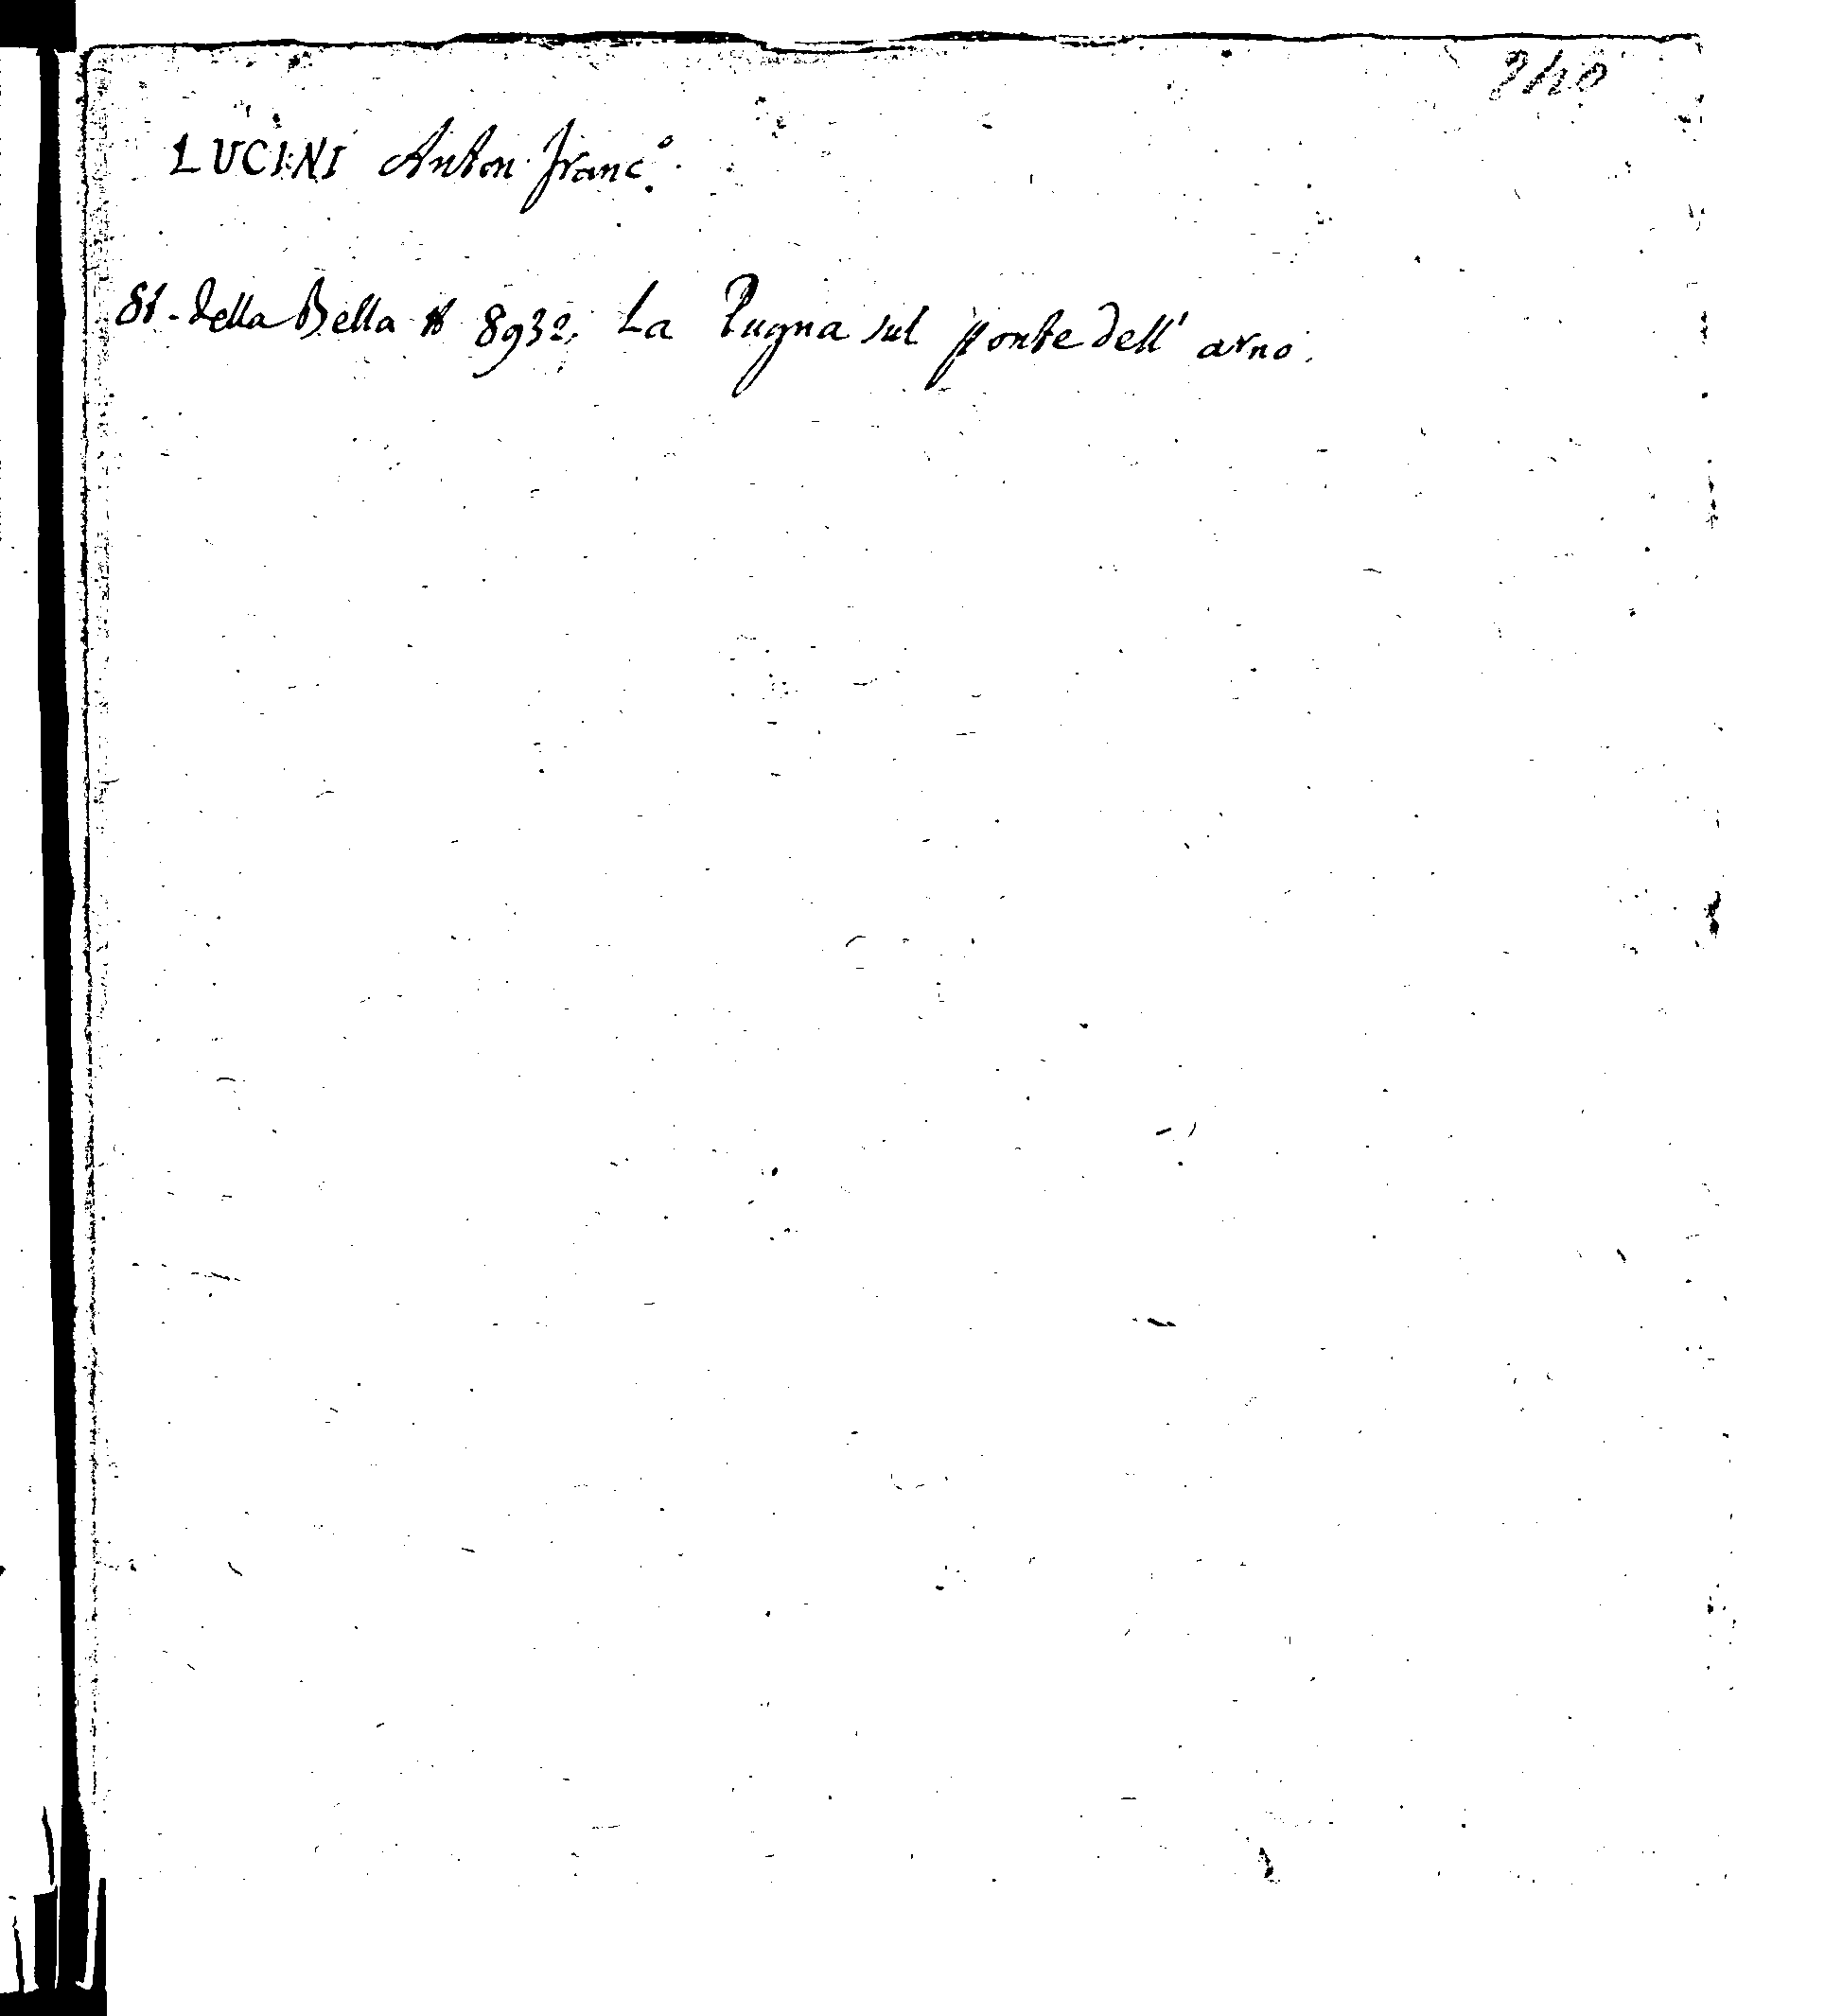 840
LUCINI Anton franc.º
St. della Bella 8932. La Pugna sul ponte dell' arno.